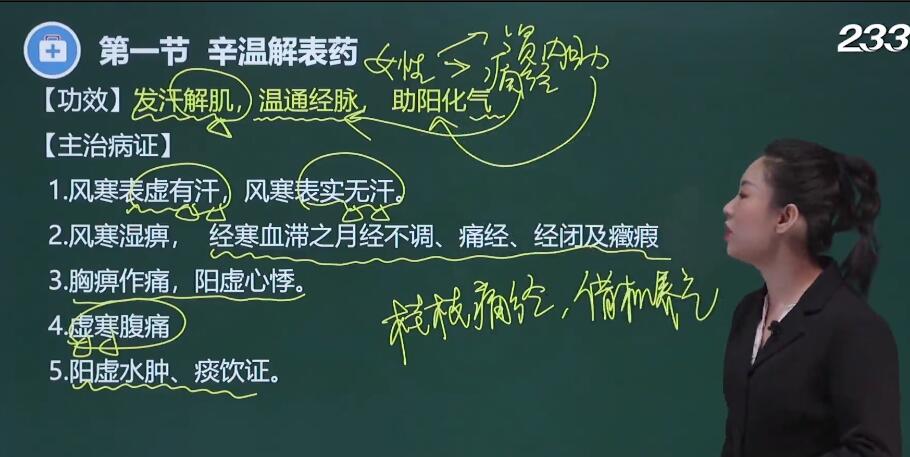 233
第一节 辛温解表药
女性 → 贤内助
痛经
【功效】发汗解肌，温通经脉，助阳化气
【主治病证】
1.风寒表虚有汗，风寒表实无汗。
2.风寒湿痹， 经寒血滞之月经不调、痛经、经闭及癥瘕
3.胸痹作痛，阳虚心悸。
4.虚寒腹痛
桂枝痛经，借机暴气
5.阳虚水肿、痰饮证。